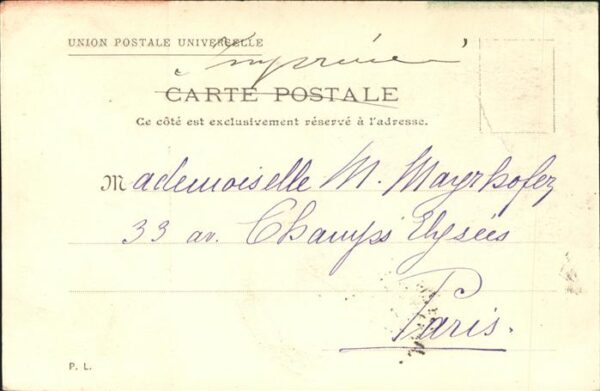 UNION POSTALE UNIVERSELLE
Imprimé
CARTE POSTALE
Ce côté est exclusivement réservé à l'adresse.
Mademoiselle M. Mayrhofer
33 av. Champs Elysées
Paris.
P. L.